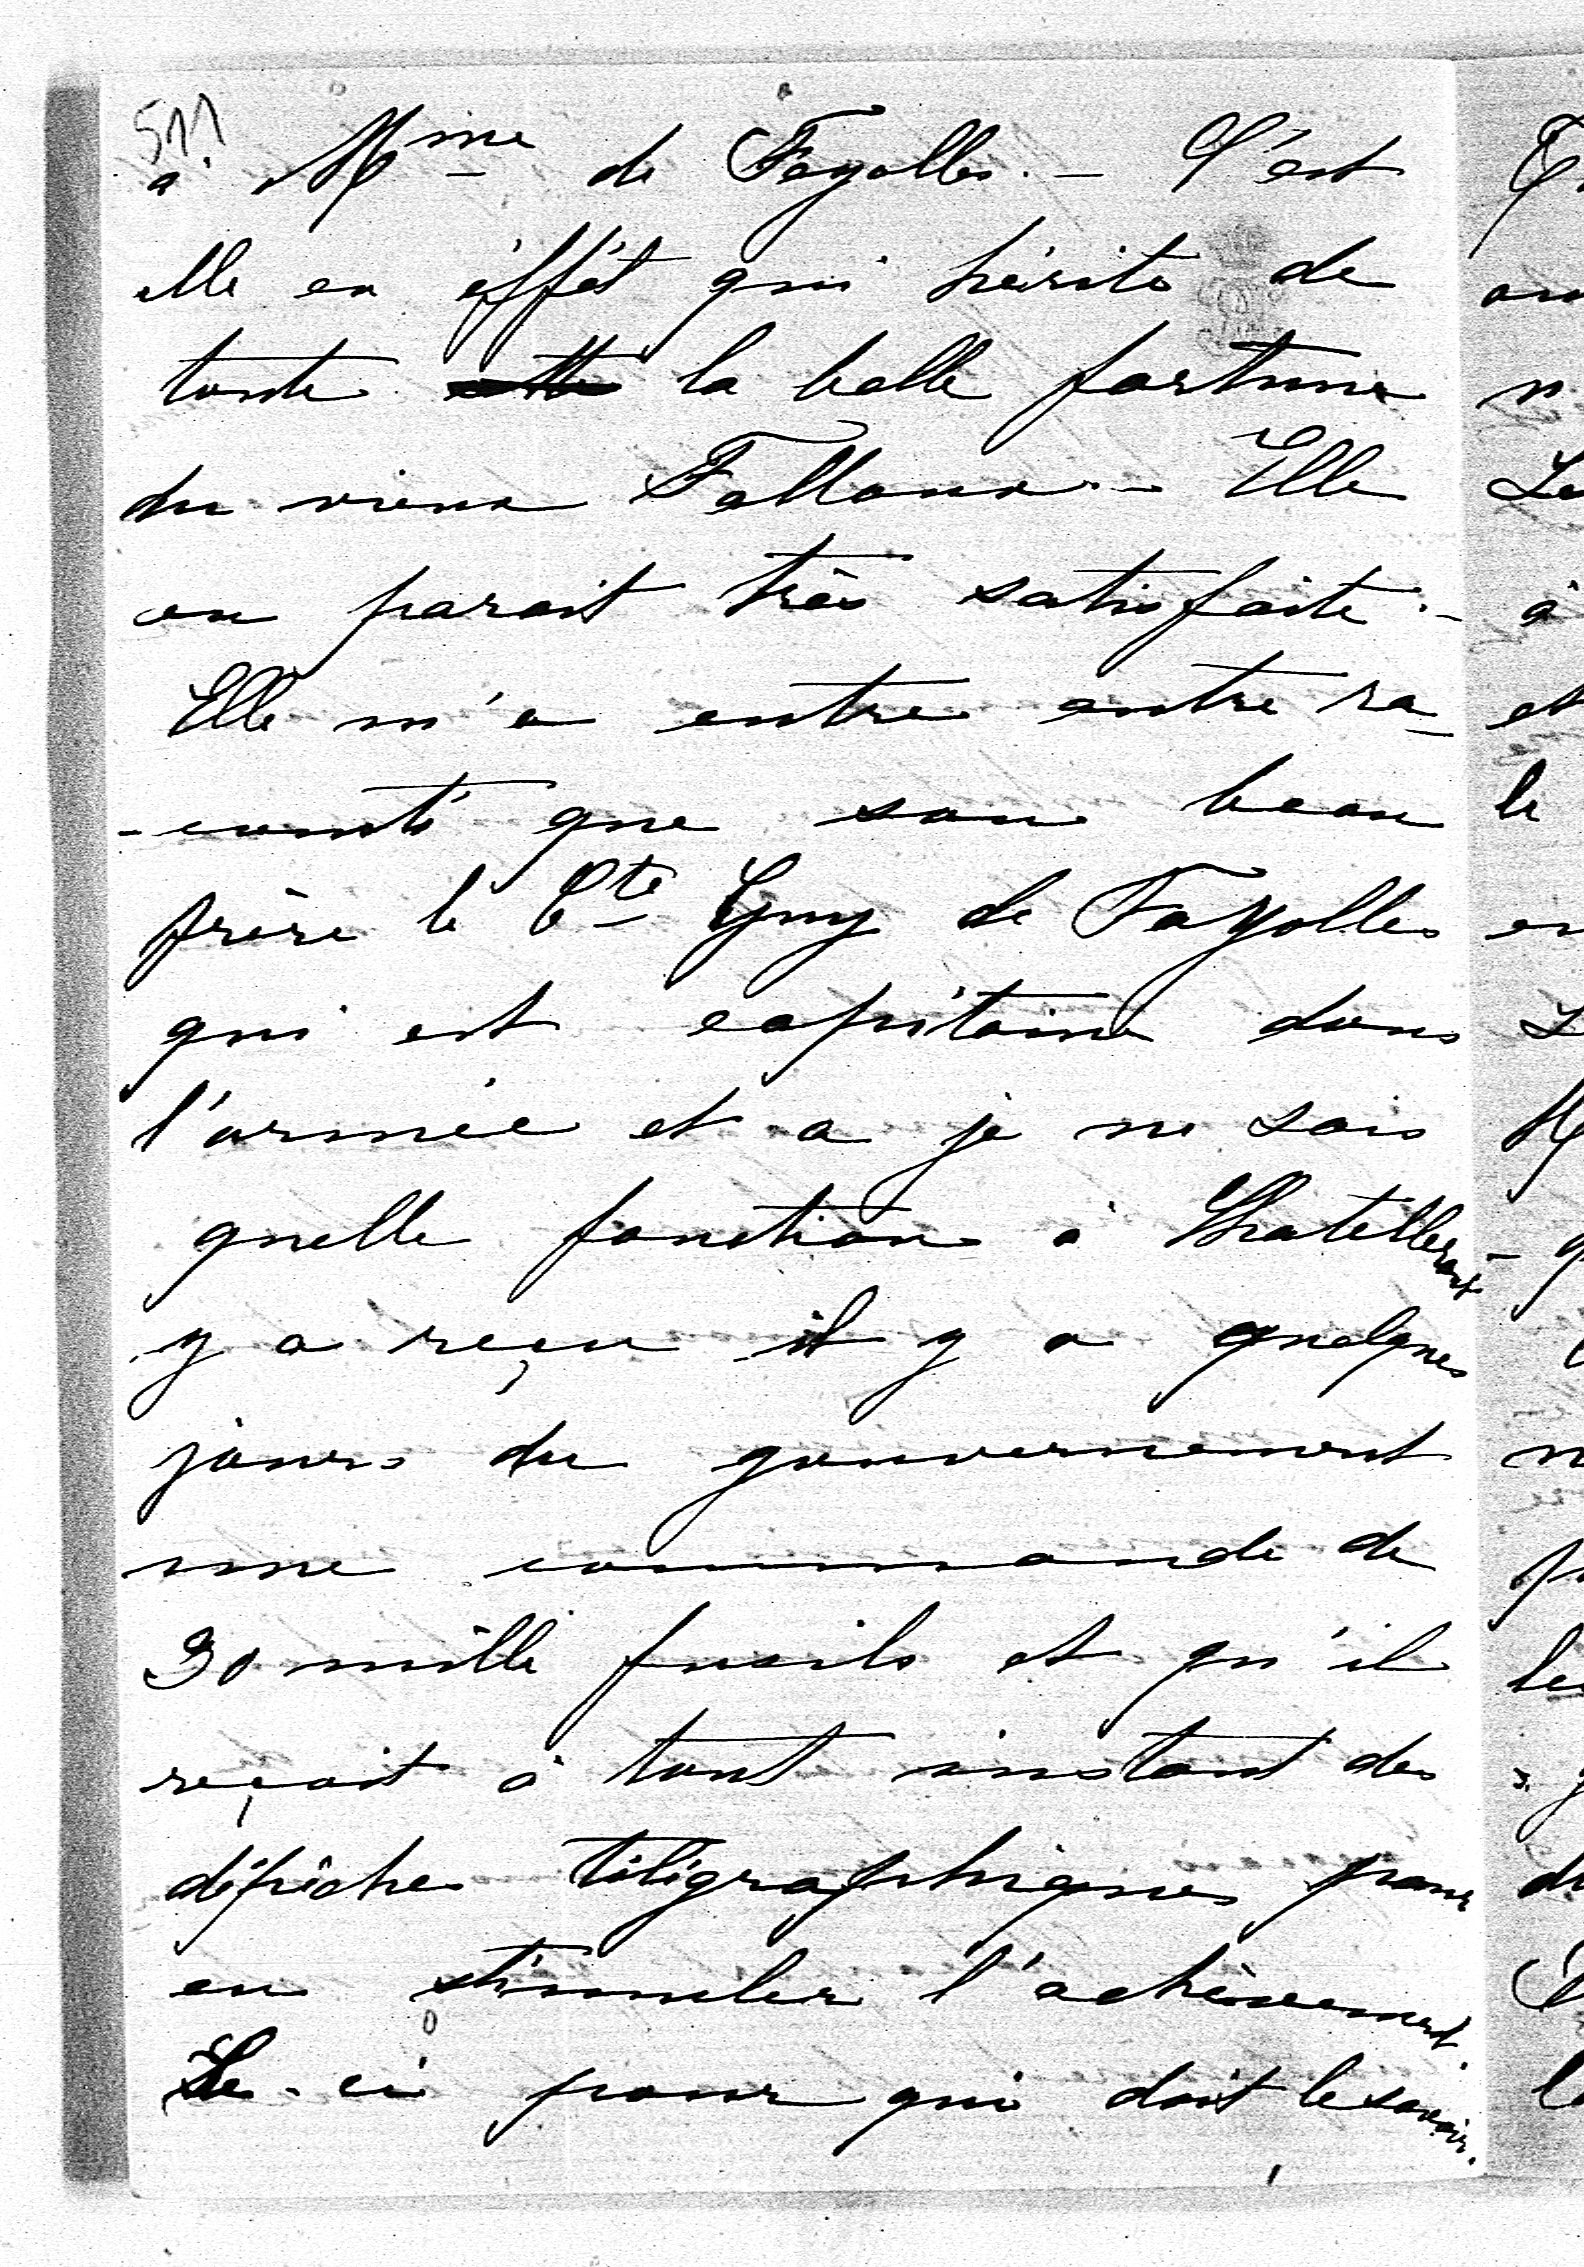 511
à Mme de Fayolles. — C'est
elle en éffet qui hérite de
toute cette la belle fortune
du vieux Falloux. — Elle
en parait très satisfaite. —
Elle m'a entre entre ra-
-conté que son beau
frère le Cte Guy de Fayolles
qui est capitaine dans
l'armée et a je ne sais
quelle fonction à Chatellerault
y a reçu il y a quelques
jours du gouvernement
une commande de
30 mille fusils et qu'il
reçoit à tout instant des
dépêches télégraphiques pour
en stimuler l'achèvement.
Ce-ci pour qui doit le savoir.